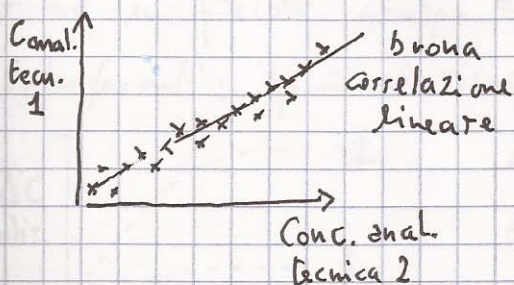 Conal.
tecn.
1
buona
correlazione
lineare
Conc. anal.
tecnica 2